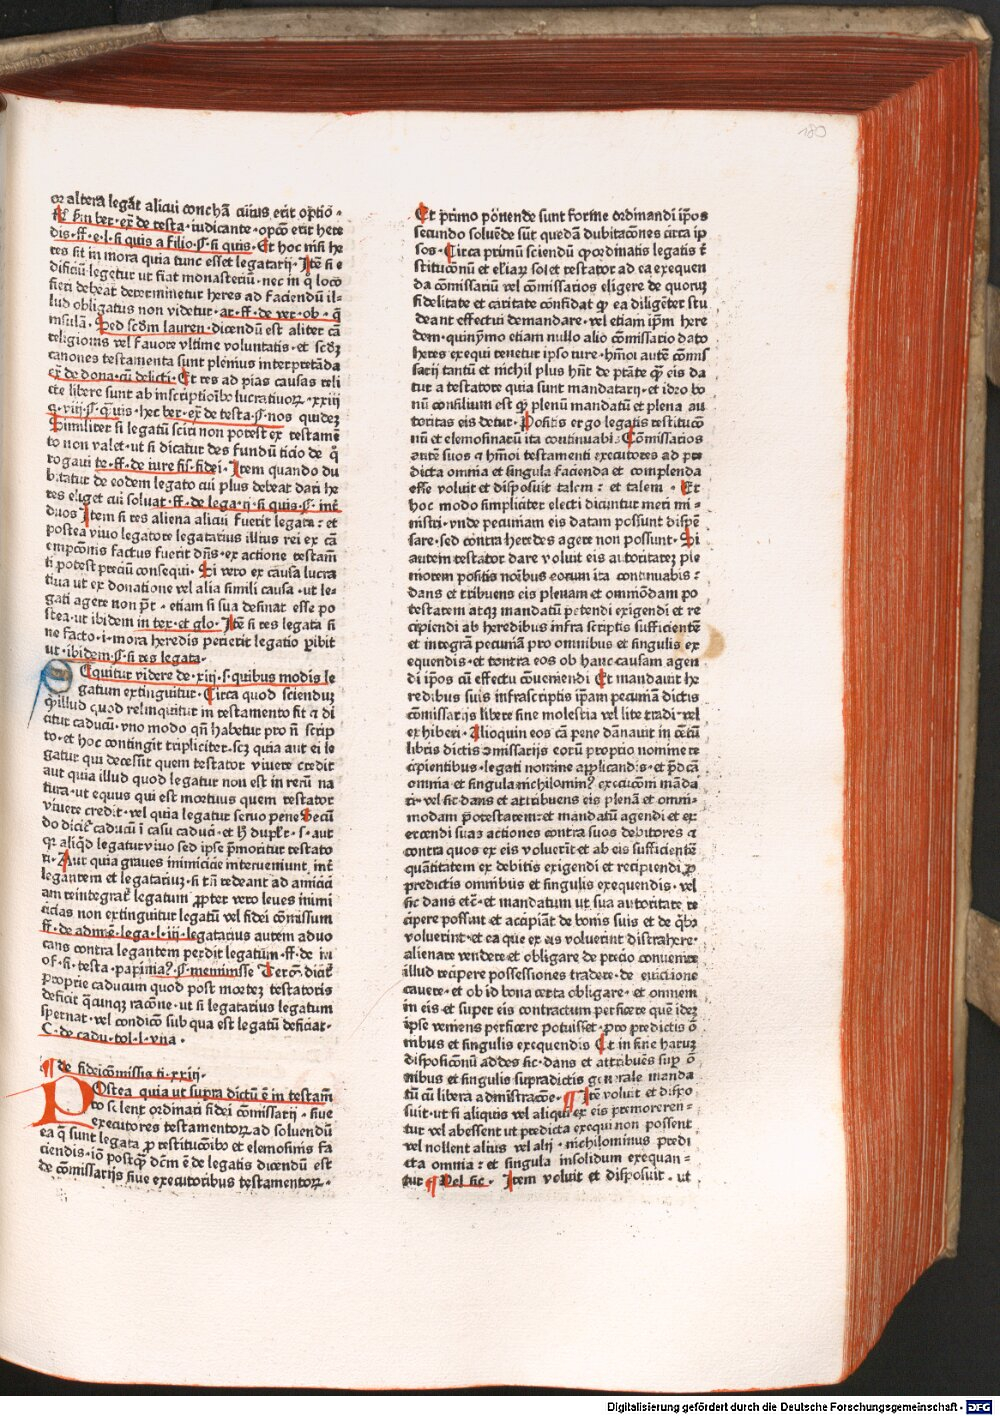 180
oꝛ altera legat̄ alicui conchā cuius erit optio ·
fi bin ber· ex̄ de testa· iudicante· opcō erit here
dis· ff· e· l· si quis a filio· §· si quis· Et hoc nisi he
res sit in mora quia tunc esset legatarij· Itē si e
dificiū legetur ut fiat monasteriū· nec in q̄ loco
fieri debeat determinetur heres ad faciendū il-
lud obligatus non videtur· ar· ff· de ver· ob· q̄
insulā· Sed scd̄m lauren· dicendū est aliter cā
religionis vel fauore vltime voluntatis· et scdꝫ
canones testamenta sunt plenius interpretāda
ex̄ de dona· cū dilecti· Et res ad pias causas reli
cte libere sunt ab inscriptioībꝰ lucratiuoꝝ· xxiij
q· viij· §· q̄uis· hec ber· ex̄ de testa· §· nos quidez
Similiter si legatū sciri non potest ex testamē
to non valet· ut si dicatur des fundū ticio de q̄
rogaui te· ff· de iure fis· fidei· Item quando du
bitatur de eodem legato cui plus debeat dari he
res eliget cui soluat· ff· de lega· ij· si quis· §· int̄
duos Item si res aliena alicui fuerit legata: et
postea vivo legatore legatarius illius rei ex cā
empcōnis factus fuerit dn̄s· ex actione testam̄
ti potest preciū consequi· Si vero ex causa lucra
tiua ut ex donatione vel alia simili causa· ut le-
gati agere non pōt· etiam si sua desinat esse po
stea· ut ibidem in tex· et glo· Itē si res legata si
ne facto· i· mora heredis perierit legatio peribit
ut· ibidem· §· si res legata·
Equitur videre de· xiij· s· quibus modis le
gatum extinguitur· Circa quod sciendum
ꝙ illud quod relinquitur in testamento fit q̄ di
citur caducū· vno modo qn̄ habetur pro nō scrip
to· et hoc contingit tripliciter· scꝫ quia aut ei le
gatur qui decessit quem testator vivere credit
aut quia illud quod legatur non est in rerū na
tura· ut equus qui est mortuus quem testator
vivere credit· vel quia legatur seruo pene Secū
do dicit̄ caducū ī casu caduci· et h̄ duplr̄· s· aut
qꝛ aliqd̄ legatur vivo sed ipse p̄moritur testato
ri· Aut quia graues inimicicie interveniunt int̄
legantem et legatariuꝫ· si tn̄ redeant ad amicici
am reintegrat̄ legatum ꝓpter vero leues inimi
cicias non extinguitur legatū vel fidei cōmissum
ff· de admē· lega· l· iii· legatarius autem aduo
cans contra legantem perdit legatum· ff· de in
of· fi· testa· papinia? §· meminisse Tercō dicit̄
proprie caducum quod post mortez testatoris
deficit q̄cunqꝫ racōne· ut si legatarius legatum
spernat· vel condicō sub qua est legatū deficiat·
C· de cadu· tol· l· vna·
¶ de fideicōmissis ti· xxiij·
POstea quia ut supra dictū ē in testam̄
to solent ordinari fidei cōmissarij· siue
executores testamentoꝝ ad soluendū
ea q̄ sunt legata ꝓ restitucōibꝰ et elemosinis fa
ciendis· iō postqꝫ dc̄m ē de legatis dicendū est
de cōmissarijs siue executoribus testamentoꝝ·
Et primo pōnende sunt forme ordinandi ip̄os
secundo soluēde sūt quedā dubitacōnes circa ip
sos· Circa primū sciendū ꝙ ordinatis legatis r̄
stitucōnū et el'iaꝝ solet testator ad ea exequen
da cōmissariū vel cōmissarios eligere de quoruꝫ
fidelitate et caritate confidat ꝙ ea diligēter stu
deant effectui demandare· vel etiam ip̄m here
dem· quinymo etiam nullo alio cōmissario dato
heres exequi tenetur ipso iure· hmōi autē cōmis
sarij tantū et nichil plus hn̄t de ptāte ꝙ eis da
tur a testatore quia sunt mandatarij· et idro bo
nū consilium est ꝙ plenū mandatū et plena au
toritas eis detur· Positis ergo legatis restitucō
nū et elemosinarū ita continuabis Cōmissarios
autē suos q̄ hmōi testamenti executores ad pre
dicta omnia et singula facienda et complenda
esse voluit et disposuit talem: et talem· Et
hoc modo simpliciter electi dicuntur meri mi-
nistri· vnde pecuniam eis datam possunt dispē
sare· sed contra heredes agere non possunt· Si
autem testator dare voluit eis autoritatez ple
niorem positis noībus eorum ita continuabis:
dans et tribuens eis plenam et omnīodam po
testatem atqꝫ mandatū petendi exigendi et re
cipiendi ab heredibus infra scriptis sufficientē
et integrā pecuniā pro omnibus et singulis ex
equendis· et contra eos ob hanc causam agen
di ip̄os cū effectu cōveniendi Et mandauit he
redibus suis infrascriptis ip̄am pecuniā dictis
cōmissarijs libere sine molestia vel lite tradi· vel
exhiberi· Alioquin eos cā pene dānauit in cētū
libris dictis ɔmissarijs eorū proprio nomine re
cipientibus· legati nomine applicandis· et p̄dcā
omnia et singula nichilomin? execucōni māda
ri· vel sic dans et attribuens eis plenā et omni-
modam p̄otestatem: et mandatū agendi et ex
ercendi suaꝫ actiones contra suos debitores q̄
contra quos ex eis voluerīt et ab eis sufficientē
quātitatem ex debitis exigendi et recipiendi ꝓ
predictis omnibus et singulis exequendis· vel
sic dans etc̄· et mandatum ut sua autoritate re
cipere possint et accipiāt de bonis suis et de q̄bꝰ
voluerint· et ea que ex eis voluerint distrahere·
alienare vendere et obligare de precio convenire
illud recipere possessiones tradere· de euictione
cauere· et ob id bona certa obligare· et omnem
in eis et super eis contractum perficere quē ideꝫ
ipse veniens perficere potuisset· pro predictis o
mnibus et singulis exequendis Et in fine haruꝫ
disposiconū addes sic· dans et attribuēs sup̄ o
mnibus et singulis supradictis generale manda
tū cū libera admistracōe· ¶ Itē voluit et dispo
suit· ut si aliquis vel aliqui ex eis premoreren-
tur vel abessent ut predicta exequi non possent
vel nollent alius vel alij· nichilominus predi
cta omnia: et singula insolidum exequan-
tur ¶ Vel sic· Item voluit et disposuit· ut
Digitalisierung gefördert durch die Deutsche Forschungsgemeinschaft - DFG